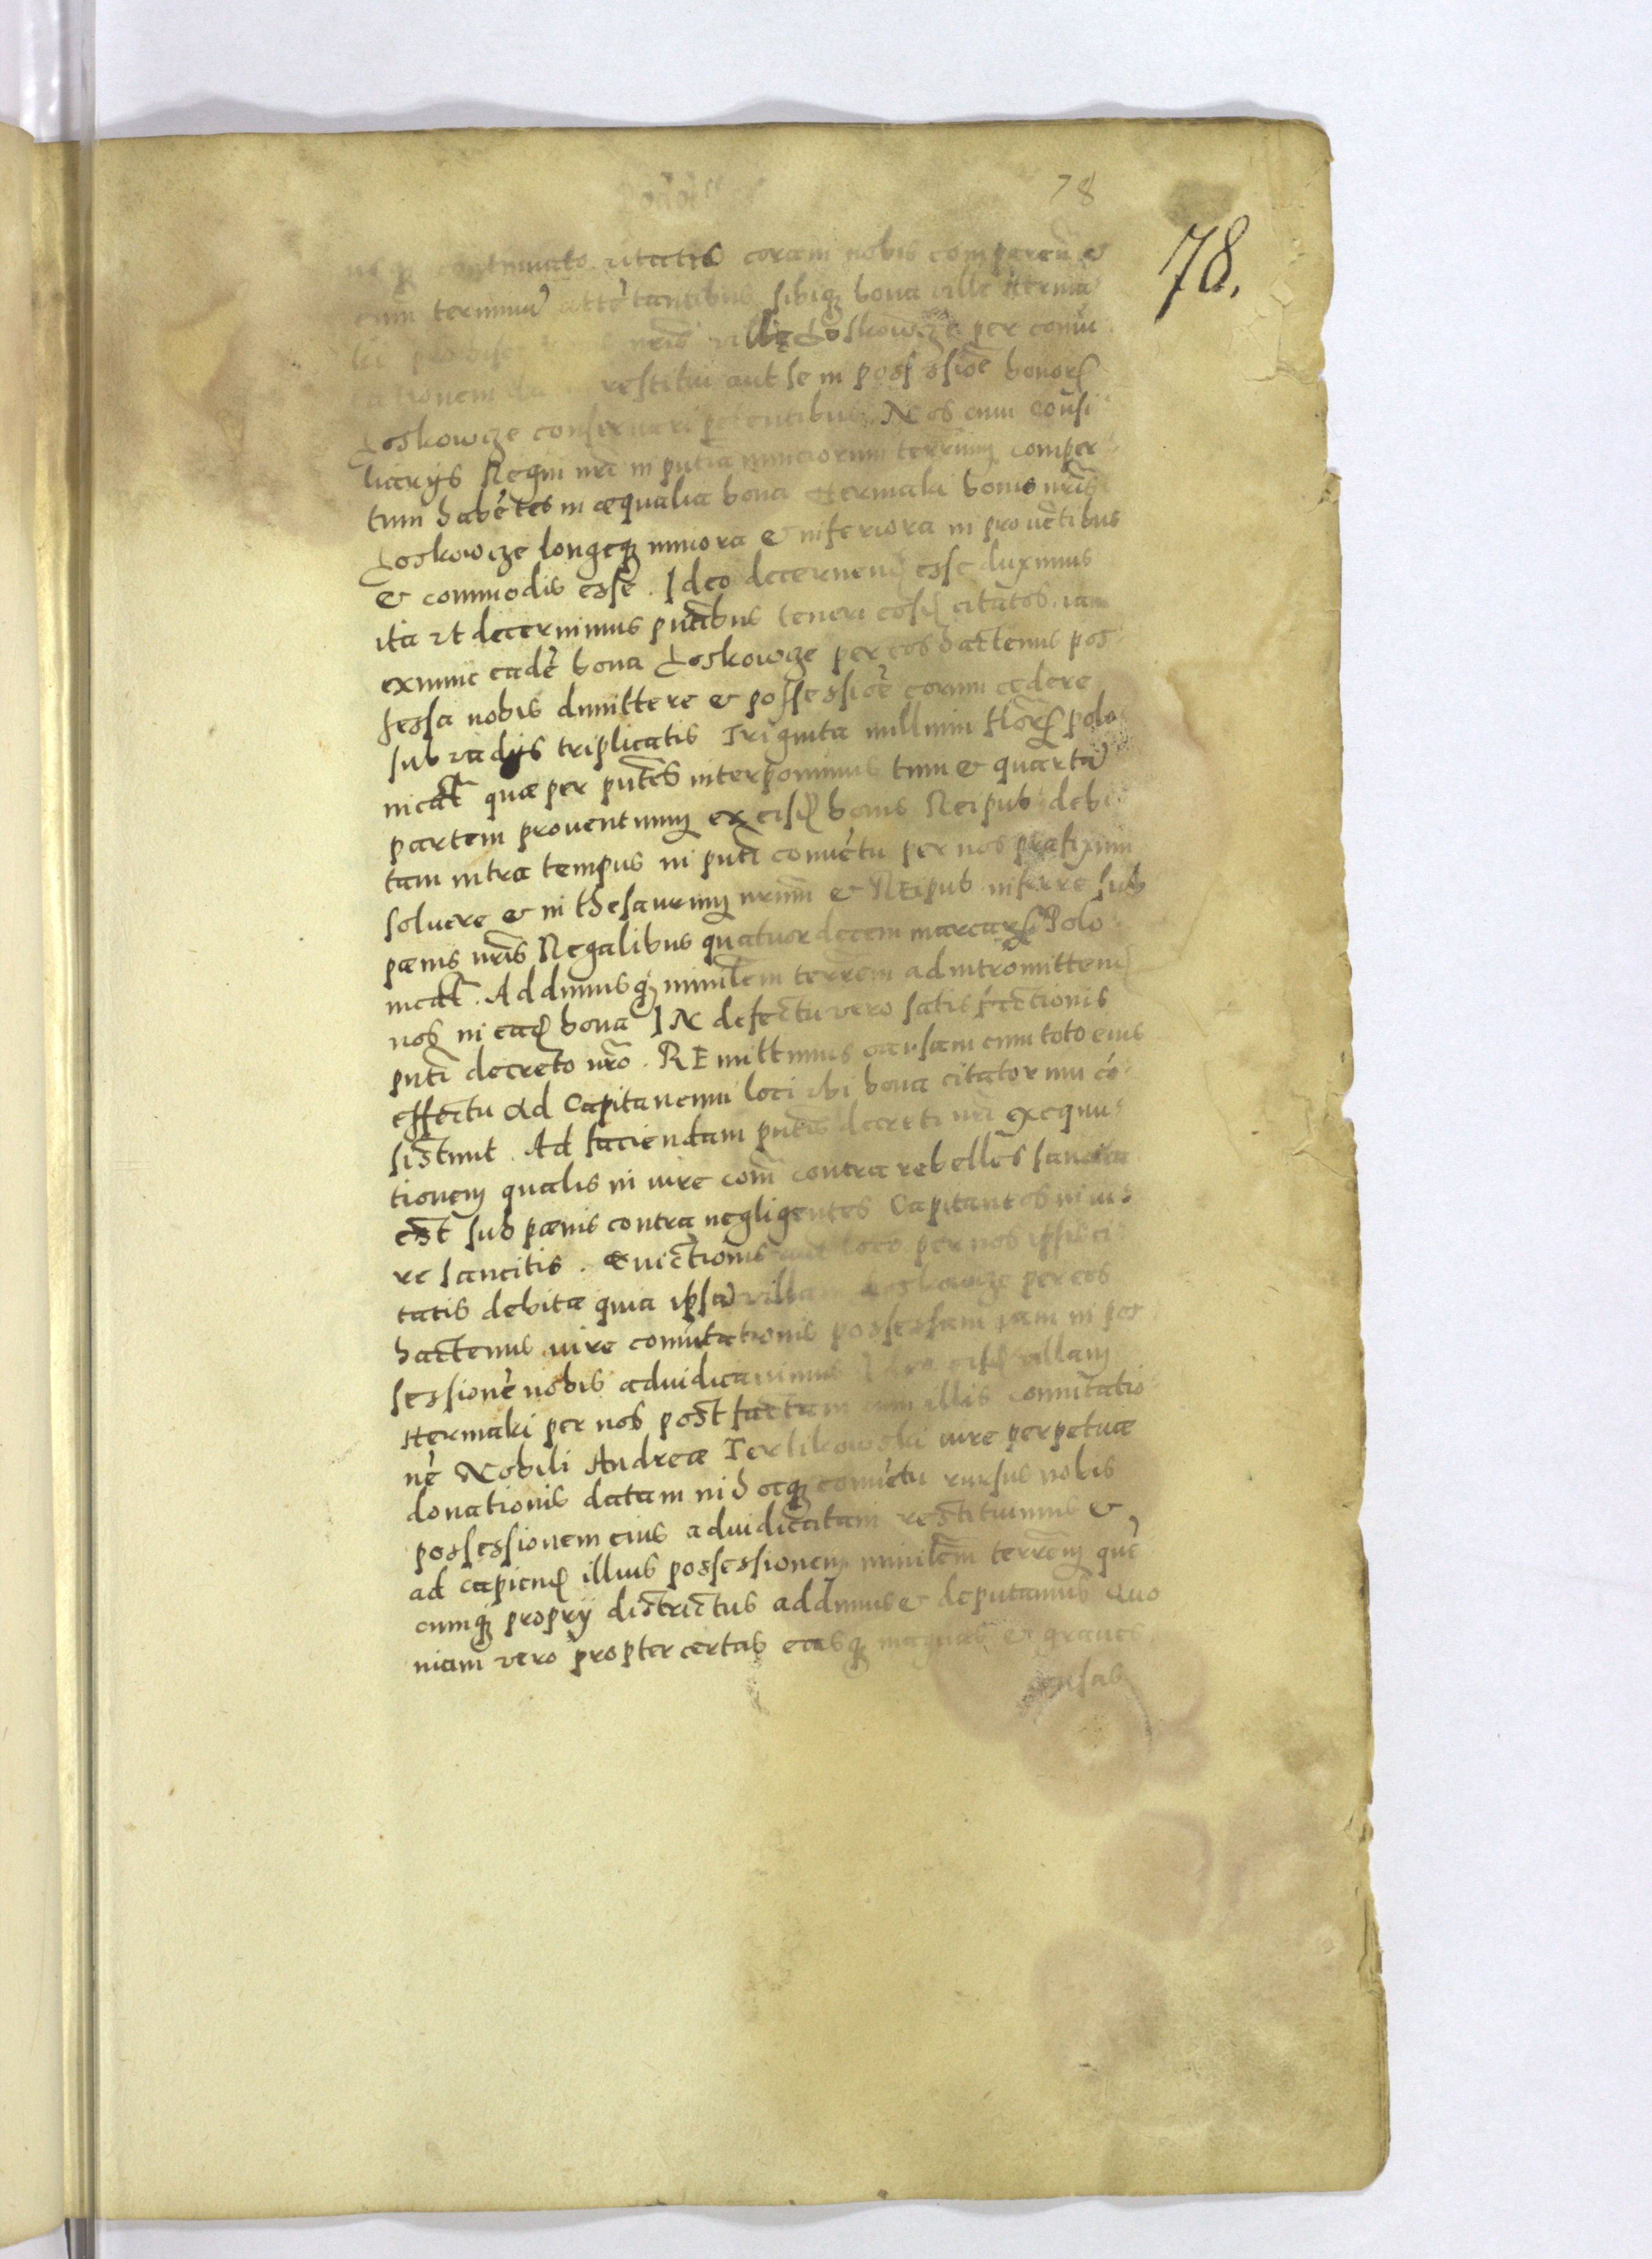 78
78.
continuato citatis coram nobis comparen et
eum terminu attetantibus sibiq bona ville Hterma
ki nris villę Loskowize per comu
tationem restitui aut se in possessioe bonor
Loskowize conseruari petentibus. Nos cum consi
liarys Regni nri in putia nunciorum terrium comper
tum habetes in æqualia bona Htermaki bonis nris
Loskowize longeq minora et inferiora in prouetibus
et commodis esse. Ideo decernen esse duximus
ita vt decernimus pntibus teneri eosd citatos iam
exnunc eade bona Loskowize per eos hactenus pos
sessa nobis dimittere et possessioe eorum cedere
sub vadys triplicatis Triginta millium flor polo
nicat quæ per putes interponimus tum et quarta
partem prouentuum ex eisd bonis Reipub debi
tam intra tempus in puti conuetu per nos præfixum
soluere et in thesaurum nrum et Reipub inferre sub
pænis nris Regalibus quatuordecem marcar Polo
nicat. Addimusq minilem terrem ad intromitten
nos in ead bona IN defectu vero satisfactionis
puti decreto nro. REmittimus causam cum toto eius
effectu ad Capitaneum loci vbi bona citatorum co
sistunt. Ad faciendam putis decreti nri exequu
tionem qualis in iure com contra rebelles sancita
est sub pænis contra negligentes Capitaneos in iu
re sancitis. Euictionis aut loco per nos ipsis ci
tatis debitæ quia ipsa villam Loskowize per eos
hactenus iure comutationis possessam iam in pos
sessione nobis adiudicauimus Ideo eisd villam
Htermaki per nos post factam cum illis comutatio
ne Nobili Andreæ Terlikowski iure perpetuæ
donationis datam in hocq conuetu rursus nobis
possessionem eius adiudicatam restituimus et
ad capien illius possessionem minilem terrem que
cumq propry districtus addimus et deputamus Quo
niam vero propter certas easq magnas et graues
causas